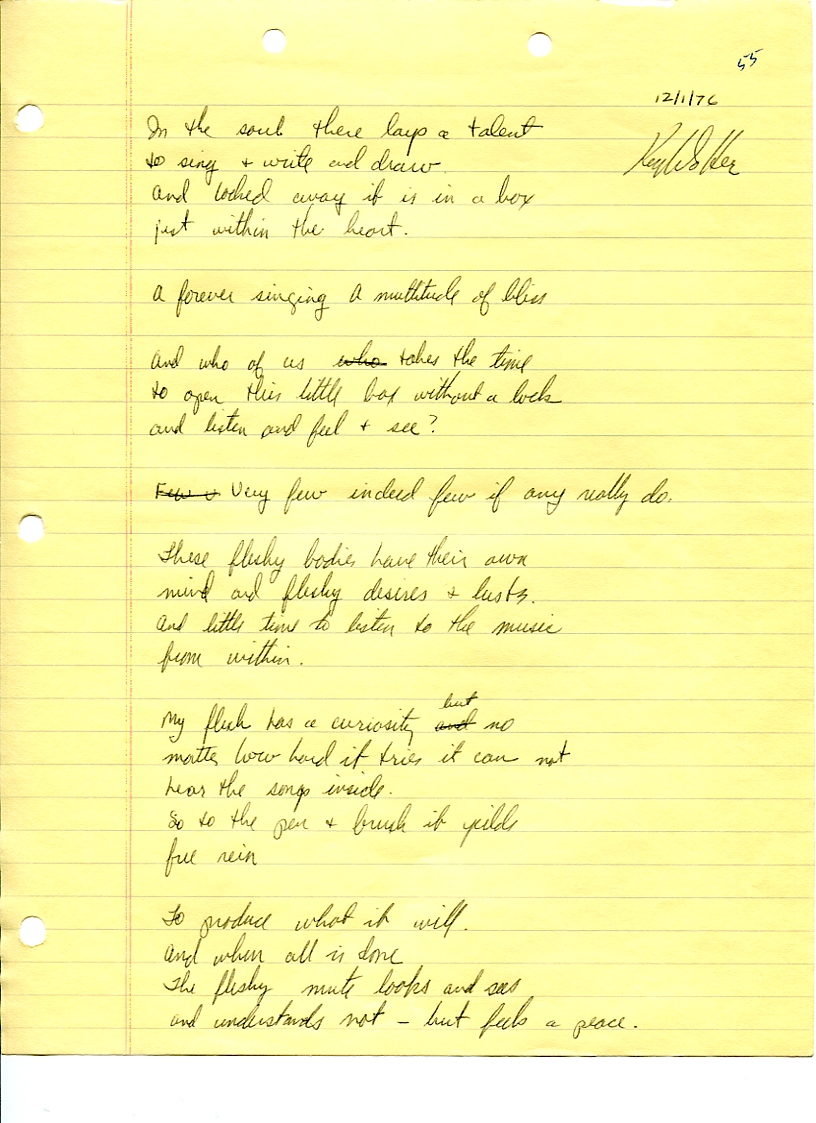 55
12/1/76
In the soul there lays a talent
to sing + write and draw.
and locked away it is in a box
just within the heart.
a forever singing a multitude of bliss
and who of us who takes the time
to open this little box without a lock
and listen and feel + see?
Few + Very few indeed few if any really do.
These fleshy bodies have their own
mind and fleshy desires + lusts.
and little time to listen to the music
from within.
My flesh has a curiosity and but no
matter how hard it tries it can not
hear the songs inside.
So to the pen + brush it yields
free rein
To produce what it will.
and when all is done
The fleshy mute looks and sees
and understands not - but feels a peace.